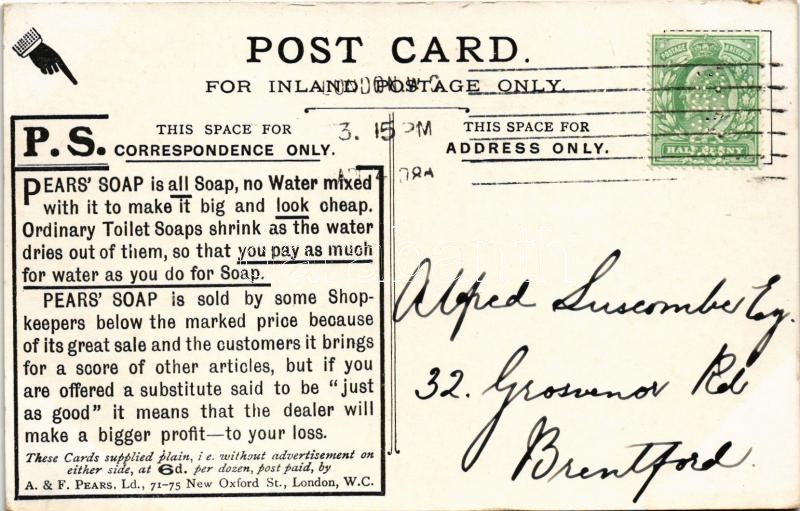 POST CARD.
FOR INLAND POSTAGE ONLY.
LONDON W.C
3. 15 PM
08A
POSTAGE & REVENUE
HALFPENNY
P.S.
THIS SPACE FOR
CORRESPONDENCE ONLY.
THIS SPACE FOR
ADDRESS ONLY.
PEARS' SOAP is all Soap, no Water mixed
with it to make it big and look cheap.
Ordinary Toilet Soaps shrink as the water
dries out of them, so that you pay as much
for water as you do for Soap.
PEARS' SOAP is sold by some Shop-
keepers below the marked price because
of its great sale and the customers it brings
for a score of other articles, but if you
are offered a substitute said to be "just
as good" it means that the dealer will
make a bigger profit—to your loss.
These Cards supplied plain, i e. without advertisement on
either side, at 6d. per dozen, post paid, by
A. & F. PEARS, Ld., 71-75 New Oxford St., London, W.C.
Alfred Luscombe Esq.
32. Grosvenor Rd
Brentford.